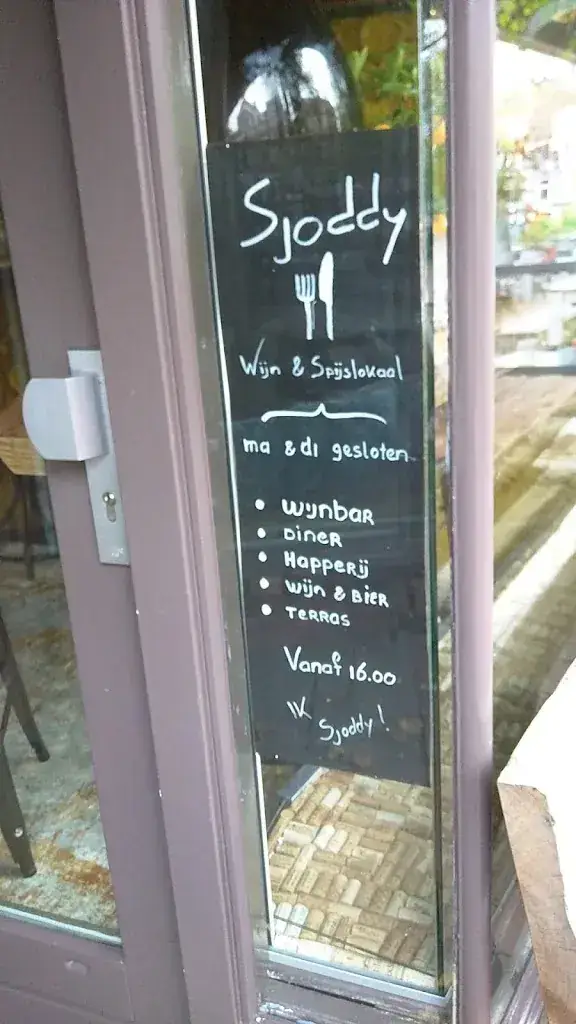 Sjoddy
Wijn & Spijslokaal
ma & di gesloten
• Wijnbar
• Diner
• Happerij
• Wijn & Bier
• Terras
Vanaf 16.00
IK
Sjoddy!